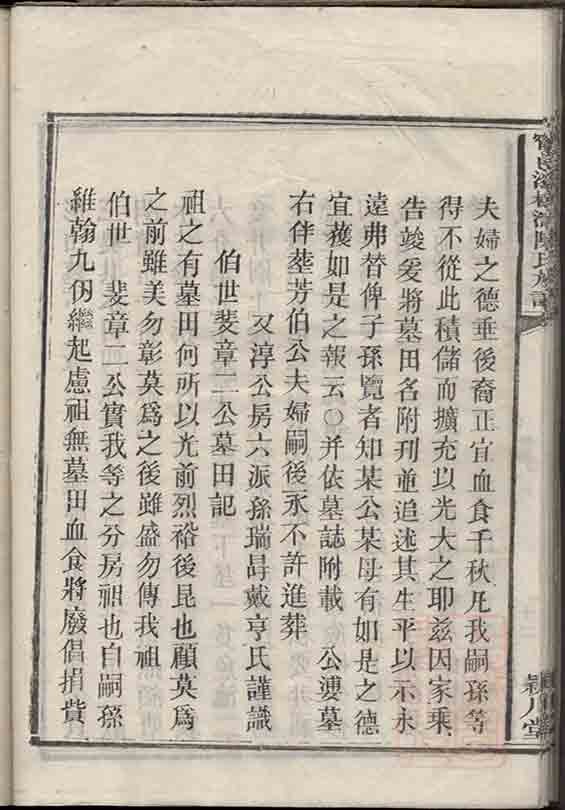 夫婦之德垂後裔正宜血食千秋凡我嗣孫等
得不從此積儲而擴充以光大之耶茲因家乘
告竣爰將墓田名附刊並追述其生平以示永
遠弗替俾子孫覽者知某公某母有如是之德
宜獲如是之報云○幷依墓誌附載　公塋墓
右伴塟芳伯公夫婦嗣後永不許進葬
又淳公房六派孫瑞㫤戴亨氏謹識
伯世斐章二公墓田記
祖之有墓田何所以光前烈裕後昆也顧莫爲
之前雖美勿彰莫爲之後雖盛勿傳我祖
伯世　斐章二公實我等之分房祖也自嗣孫
維翰九仞繼起慮祖無墓田血食將廢倡捐貲
潁川堂